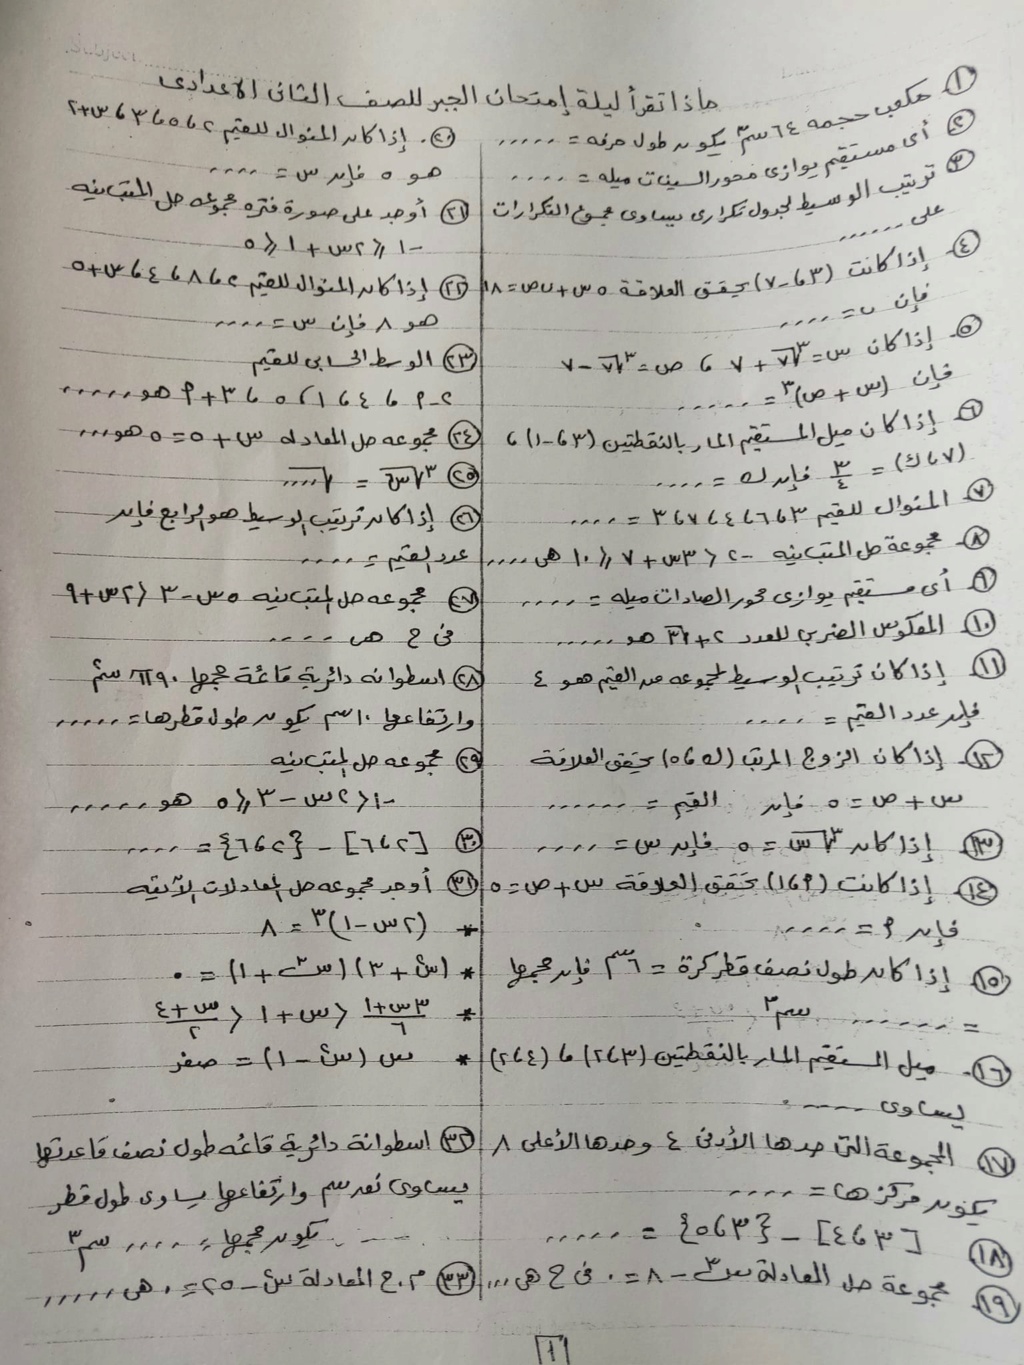 ماذا تقرأ ليلة إمتحان الجبر للصف الثانى الاعدادى
١ مكعب حجمه ٦٤ سم٣ يكون طول حرفه = .....
٢ أى مستقيم يوازى محور السينات ميله = ....
٣ ترتيب الوسيط لجدول تكرارى يساوى مجموع التكرارات
على ......
٤ إذا كانت (٣، -٧) تحقق العلاقة ٥س + ب ص = ١٨
فإن ب = ....
٥ إذا كان س = ٣√٧ + ٧ ، ص = ٣√٧ - ٧
فإن (س + ص)٣ = ......
٦ إذا كان ميل المستقيم المار بالنقطتين (٣، -١) ،
(٧، ك) = ٣/٤ فإن ك = ....
٧ المنوال للقيم ٣، ٦، ٤، ٧، ٣ = ....
٨ مجموعة حل المتباينه -٢ < ٣س + ٧ ≤ ١٠ هى ....
٩ أى مستقيم يوازى محور الصادات ميله = .....
١٠ المعكوس الضربى للعدد ٢ + √٣ هو .....
١١ إذا كان ترتيب الوسيط لمجموعه من القيم هو ٤
فإن عدد القيم = ....
١٢ إذا كان الزوج المرتب (ك، ٥) يحقق العلاقة
س + ص = ٥ فإن القيم = ......
١٣ إذا كان ٣√س = ٥ فإن س = ....
١٤ إذا كانت (٩، ١) تحقق العلاقة س + ص = ٥
فإن ٩ = .....
١٥ إذا كان طول نصف قطر كرة = ٦سم فإن حجمها
= ...... سم٣
١٦ ميل المستقيم المار بالنقطتين (٣، ٢) ، (٤، ٢)
يساوى .....
١٧ المجموعة التى حدها الأدنى ٤ وحدها الأعلى ٨
يكون مركزها = ....
١٨ [٣، ٤] - {٣، ٥} = .....
١٩ مجموعة حل المعادلة س٣ - ٨ = ٠ فى ح هى ....
٢٠ إذا كان المنوال للقيم ٢، ٥، ٣، س + ٢
هو ٥ فإن س = ....
٢١ أوجد على صورة فتره مجموعه حل المتباينه
-١ ≤ ٢س + ١ ≤ ٥
٢٢ إذا كان المنوال للقيم ٢، ٨، ٤، س + ٥
هو ٨ فإن س = ....
٢٣ الوسط الحسابى للقيم
٢ - ٩، ٤، ١، ٥، ٣ + ٩ هو ......
٢٤ مجموعه حل المعادله س + ٥ = ٥ هو ....
٢٥ ٣√س = √....
٢٦ إذا كان ترتيب الوسيط هو الرابع فإن
عدد القيم = ....
٢٧ مجموعه حل المتباينه ٥س - ٣ < ٢س + ٩
فى ح هى ....
٢٨ اسطوانه دائرية قائمة حجمها ٩٠π سم٣
وارتفاعها ١٠سم يكون طول قطرها = .....
٢٩ مجموعه حل المتباينه
-١ < ٢س - ٣ ≤ ٥ هو ......
٣٠ [٢، ٦] - {٢، ٦} = ....
٣١ أوجد مجموعه حل المعادلات الآتيه
* (٢س - ١)٣ = ٨
* (س٢ + ٣) (س٣ + ١) = ٠
* ٣س+١/٦ < س + ١ < س+٤/٢
* س (س٢ - ١) = صفر
٣٢ اسطوانة دائرية قائمه طول نصف قاعدتها
يساوى نق سم وارتفاعها يساوى طول قطر
يكون حجمها = .... سم٣
٣٣ م.ح المعادلة س٢ - ٢٥ = ٠ هى .....
١